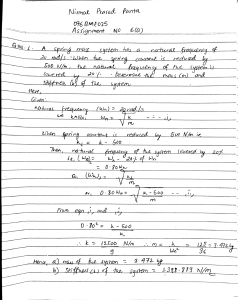 Nirmal Prasad Panta
Assignment NO 6(a)
A spring mass system has a natural frequency of
20 rad/s. When the spring constant is reduced by
500 N/m, the natural frequency of the system is
lowered by 20%. Determine the mass (m) and
stiffness (k) of the system.
Here,
Given:
Natural frequency (Wn) = 20 rad/s
we know, Wn = √k/m --- i,
When spring constant is reduced by 500 N/m ie.
k₀ = k - 500
Then, natural frequency of the system lowered by 20%
= 0.80Wn
or, 0.80Wn = √k-500/m --- ii,
From eqn i, and ii,
0.80² = k-500/k
∴ k = 12500 N/m
9
36
Here, a) mass of the system = 3.472 kg
b) stiffness (k) of the system = 1388.889 N/m